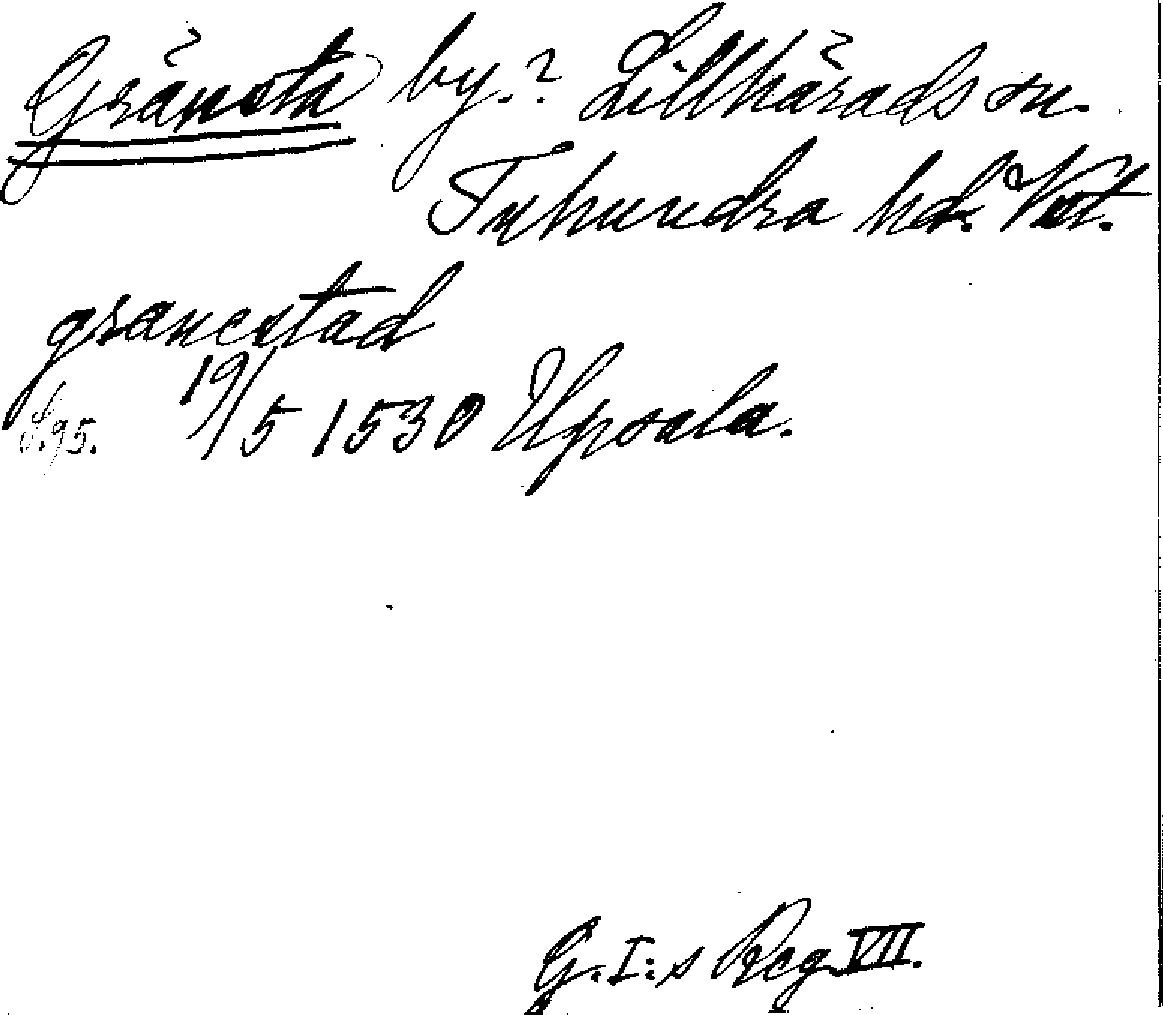 Gränsta by.? Lillhärads sn.
Tuhundra hd. Vst.
granestad
S.95. 19/5 1530 Upsala.
G.I:s Reg. VII.